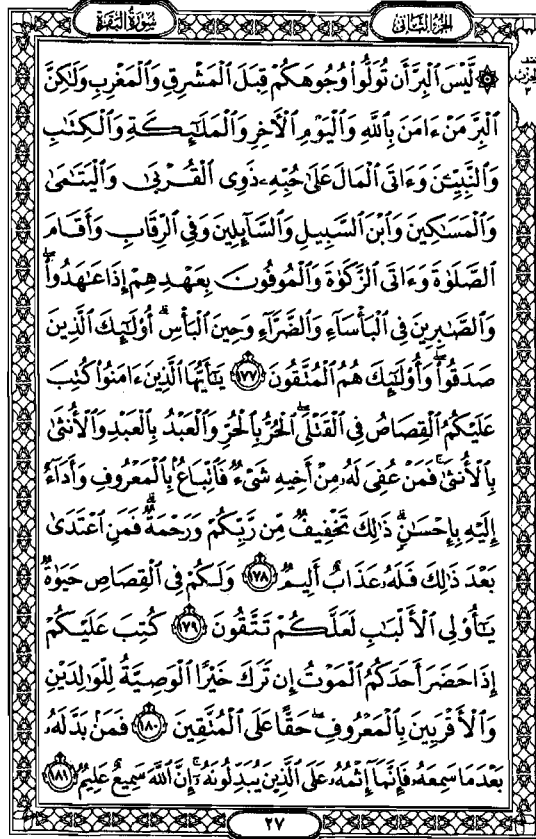 سُورَةُ البَقَرَةِ الجُزْءُ الثَّانِي
۞ لَّيْسَ ٱلْبِرَّ أَن تُوَلُّوا۟ وُجُوهَكُمْ قِبَلَ ٱلْمَشْرِقِ وَٱلْمَغْرِبِ وَلَٰكِنَّ
ٱلْبِرَّ مَنْ ءَامَنَ بِٱللَّهِ وَٱلْيَوْمِ ٱلْءَاخِرِ وَٱلْمَلَٰٓئِكَةِ وَٱلْكِتَٰبِ
وَٱلنَّبِيِّۦنَ وَءَاتَى ٱلْمَالَ عَلَىٰ حُبِّهِۦ ذَوِى ٱلْقُرْبَىٰ وَٱلْيَتَٰمَىٰ
وَٱلْمَسَٰكِينَ وَٱبْنَ ٱلسَّبِيلِ وَٱلسَّآئِلِينَ وَفِى ٱلرِّقَابِ وَأَقَامَ
ٱلصَّلَوٰةَ وَءَاتَى ٱلزَّكَوٰةَ وَٱلْمُوفُونَ بِعَهْدِهِمْ إِذَا عَٰهَدُوا۟ ۖ
وَٱلصَّٰبِرِينَ فِى ٱلْبَأْسَآءِ وَٱلضَّرَّآءِ وَحِينَ ٱلْبَأْسِ ۗ أُو۟لَٰٓئِكَ ٱلَّذِينَ
صَدَقُوا۟ ۖ وَأُو۟لَٰٓئِكَ هُمُ ٱلْمُتَّقُونَ ١٧٧ يَٰٓأَيُّهَا ٱلَّذِينَ ءَامَنُوا۟ كُتِبَ
عَلَيْكُمُ ٱلْقِصَاصُ فِى ٱلْقَتْلَى ۖ ٱلْحُرُّ بِٱلْحُرِّ وَٱلْعَبْدُ بِٱلْعَبْدِ وَٱلْأُنثَىٰ
بِٱلْأُنثَىٰ ۚ فَمَنْ عُفِىَ لَهُۥ مِنْ أَخِيهِ شَىْءٌ فَٱتِّبَاعٌۢ بِٱلْمَعْرُوفِ وَأَدَآءٌ
إِلَيْهِ بِإِحْسَٰنٍ ۗ ذَٰلِكَ تَخْفِيفٌ مِّن رَّبِّكُمْ وَرَحْمَةٌ ۗ فَمَنِ ٱعْتَدَىٰ
بَعْدَ ذَٰلِكَ فَلَهُۥ عَذَابٌ أَلِيمٌ ١٧٨ وَلَكُمْ فِى ٱلْقِصَاصِ حَيَوٰةٌ
يَٰٓأُو۟لِى ٱلْأَلْبَٰبِ لَعَلَّكُمْ تَتَّقُونَ ١٧٩ كُتِبَ عَلَيْكُمْ
إِذَا حَضَرَ أَحَدَكُمُ ٱلْمَوْتُ إِن تَرَكَ خَيْرًا ٱلْوَصِيَّةُ لِلْوَٰلِدَيْنِ
وَٱلْأَقْرَبِينَ بِٱلْمَعْرُوفِ ۖ حَقًّا عَلَى ٱلْمُتَّقِينَ ١٨٠ فَمَنۢ بَدَّلَهُۥ
بَعْدَمَا سَمِعَهُۥ فَإِنَّمَآ إِثْمُهُۥ عَلَى ٱلَّذِينَ يُبَدِّلُونَهُۥٓ ۚ إِنَّ ٱللَّهَ سَمِيعٌ عَلِيمٌ ١٨١
٢٧